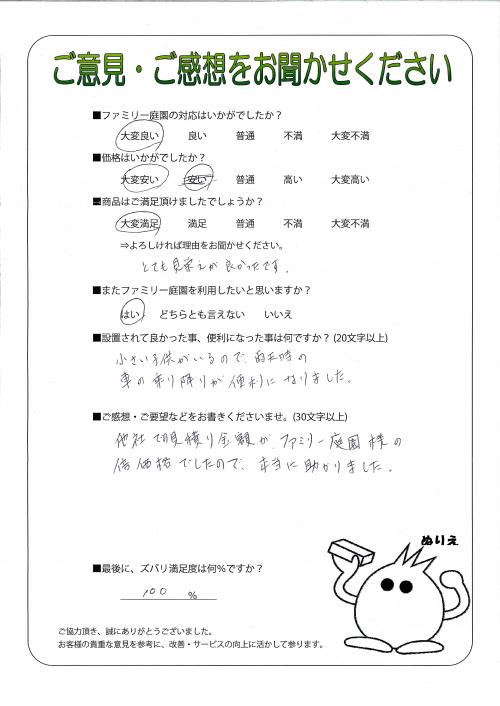 ご意見・ご感想をお聞かせください
■ファミリー庭園の対応はいかがでしたか？
大変良い 良い 普通 不満 大変不満
■価格はいかがでしたか？
大変安い 安い 普通 高い 大変高い
■商品はご満足頂けましたでしょうか？
大変満足 満足 普通 不満 大変不満
⇒よろしければ理由をお聞かせください。
とても見栄えが良かったです。
■またファミリー庭園を利用したいと思いますか？
はい どちらとも言えない いいえ
■設置されて良かった事、便利になった事は何ですか？ (20文字以上)
小さい子供がいるので、雨天時の
車の乗り降りが便利になりました。
■ご感想・ご要望などをお書きくださいませ。(30文字以上)
他社で見積り金額が、ファミリー庭園様の
倍価格でしたので、本当に助かりました。
ぬりえ
■最後に、ズバリ満足度は何％ですか？
100 ％
ご協力頂き、誠にありがとうございました。
お客様の貴重な意見を参考に、改善・サービスの向上に活かして参ります。